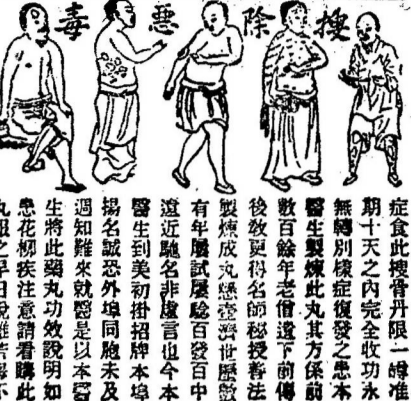 搜除悪毒
症食此搜骨丹限一星期准
期十天之內完全收功永
無轉別樣症復發之患本
醫生製煉此丸其方係前
數百餘年老僧遺下前傳
後敎更得名師秘授善法
製煉成丸懸壺濟世歷數
有年屢試屢驗百發百中
遠近馳名非虛言也今本
醫生到美初掛招牌本埠
揚名誠恐外埠同胞未及
週知難來就醫是以本醫
生將此藥丸功效說明如
患花柳疾注意請看購此
丸服之早日脫離苦海